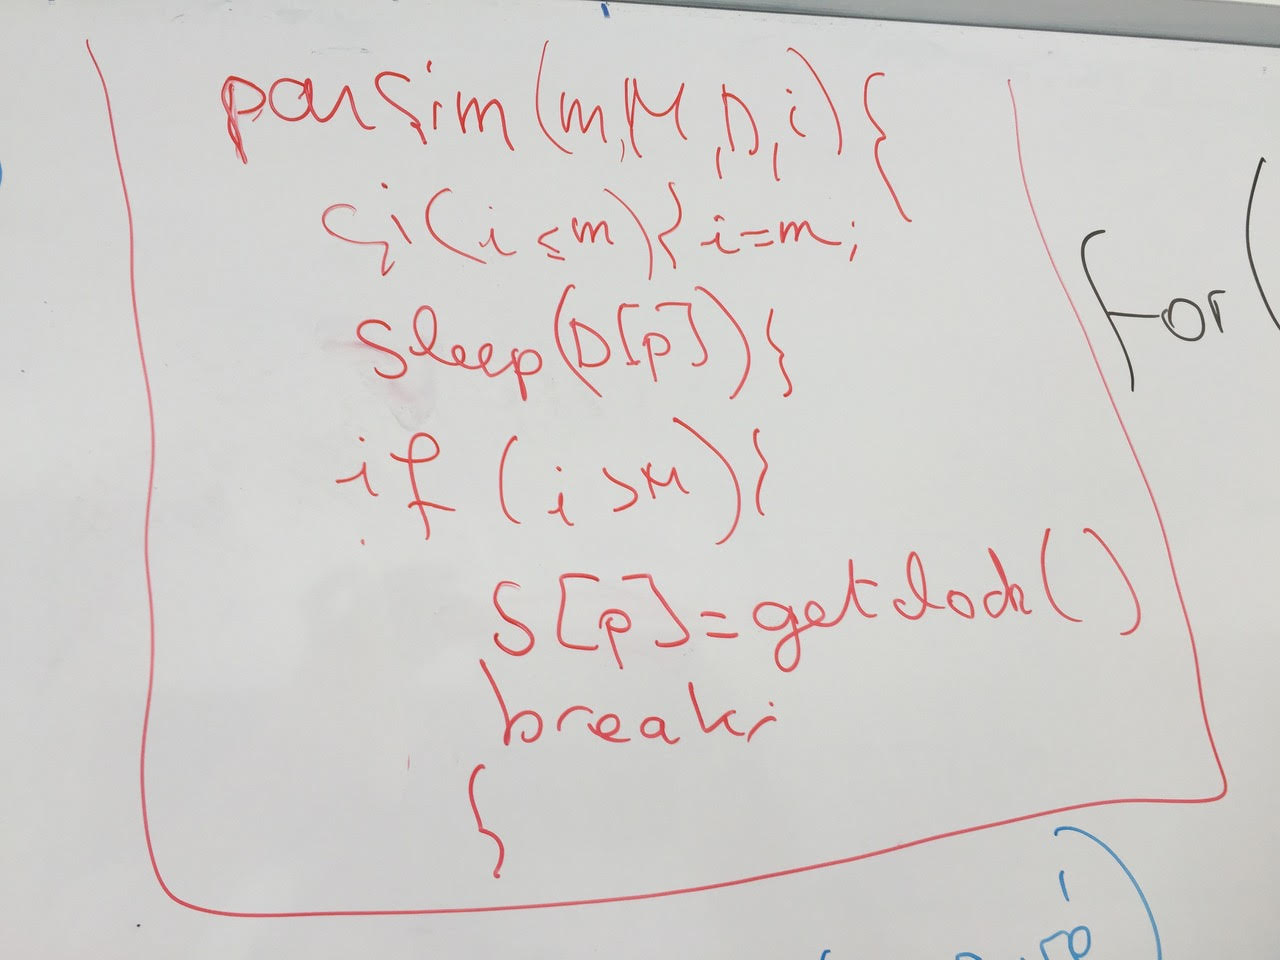 parsim(m,M,D,i){
si(i≤m){i=m;
for(
sleep(D[p])}
if (i>M)}
S[p]=getclock()
break;
{